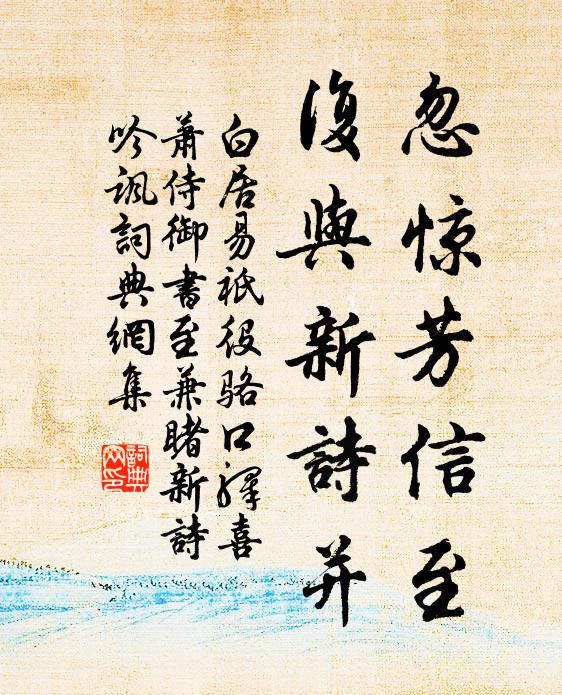 忽惊芳信至
復與新詩并
白居易祇役骆口驛喜
萧侍御書至兼睹新詩
吟諷詞典網集
詞典
网印